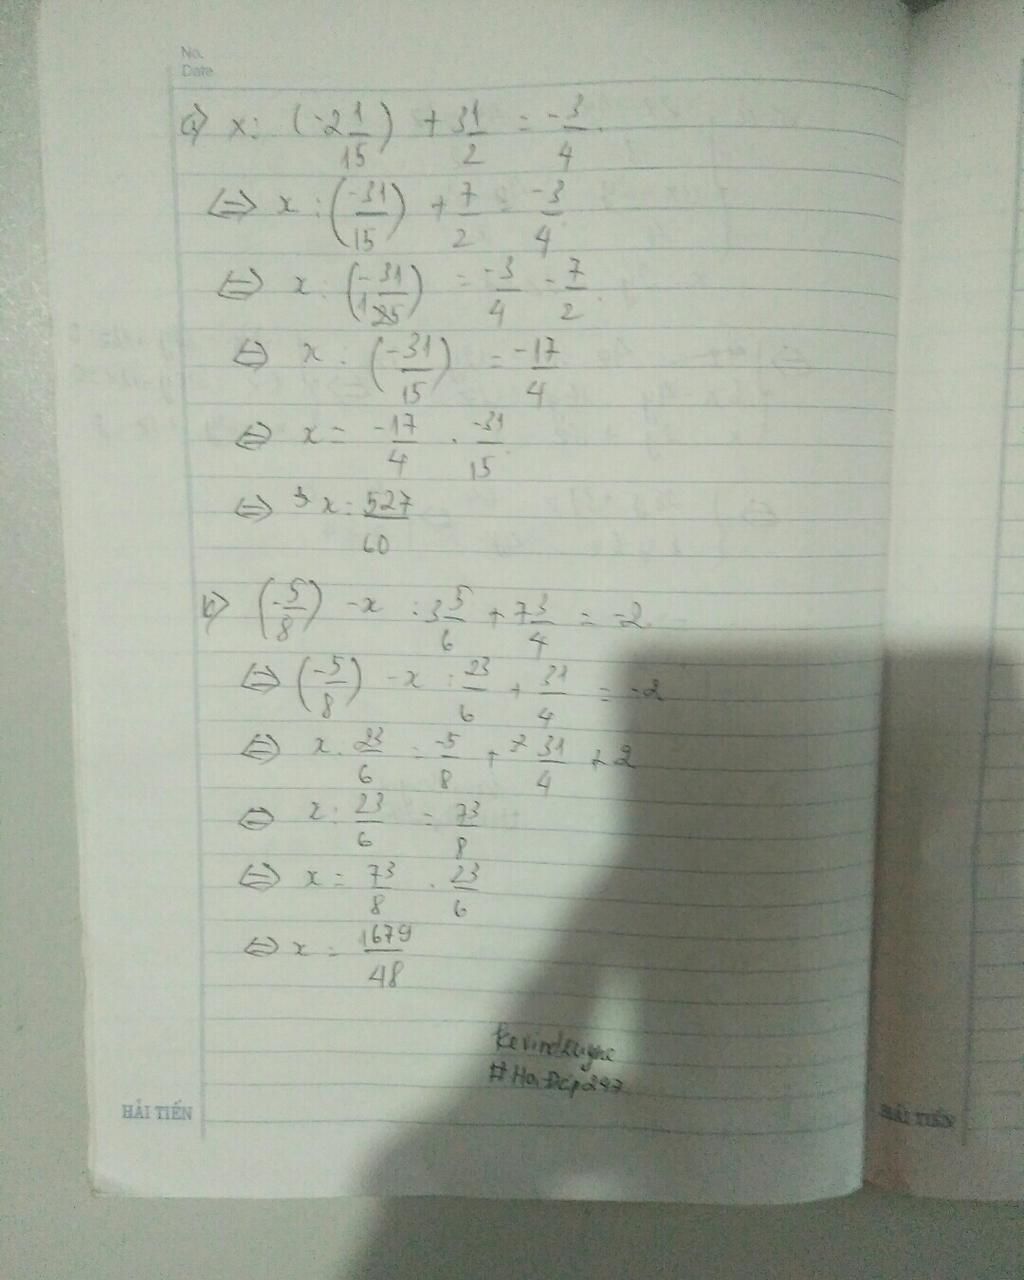 No.
Date
a) x : (-2 1/15) + 3 1/2 = -3/4
⇔ x : (-31/15) + 7/2 = -3/4
⇔ x : (-31/15) = -3/4 - 7/2
⇔ x : (-31/15) = -17/4
⇔ x = -17/4 . -31/15
⇔ x = 527/60
b) (-5/8) - x : 3 5/6 + 7 3/4 = -2
⇔ (-5/8) - x : 23/6 + 31/4 = -2
⇔ x : 23/6 = -5/8 + 31/4 + 2
⇔ x : 23/6 = 73/8
⇔ x = 73/8 . 23/6
⇔ x = 1679/48
#HoiDap247
HẢI TIẾN
HẢI TIẾN